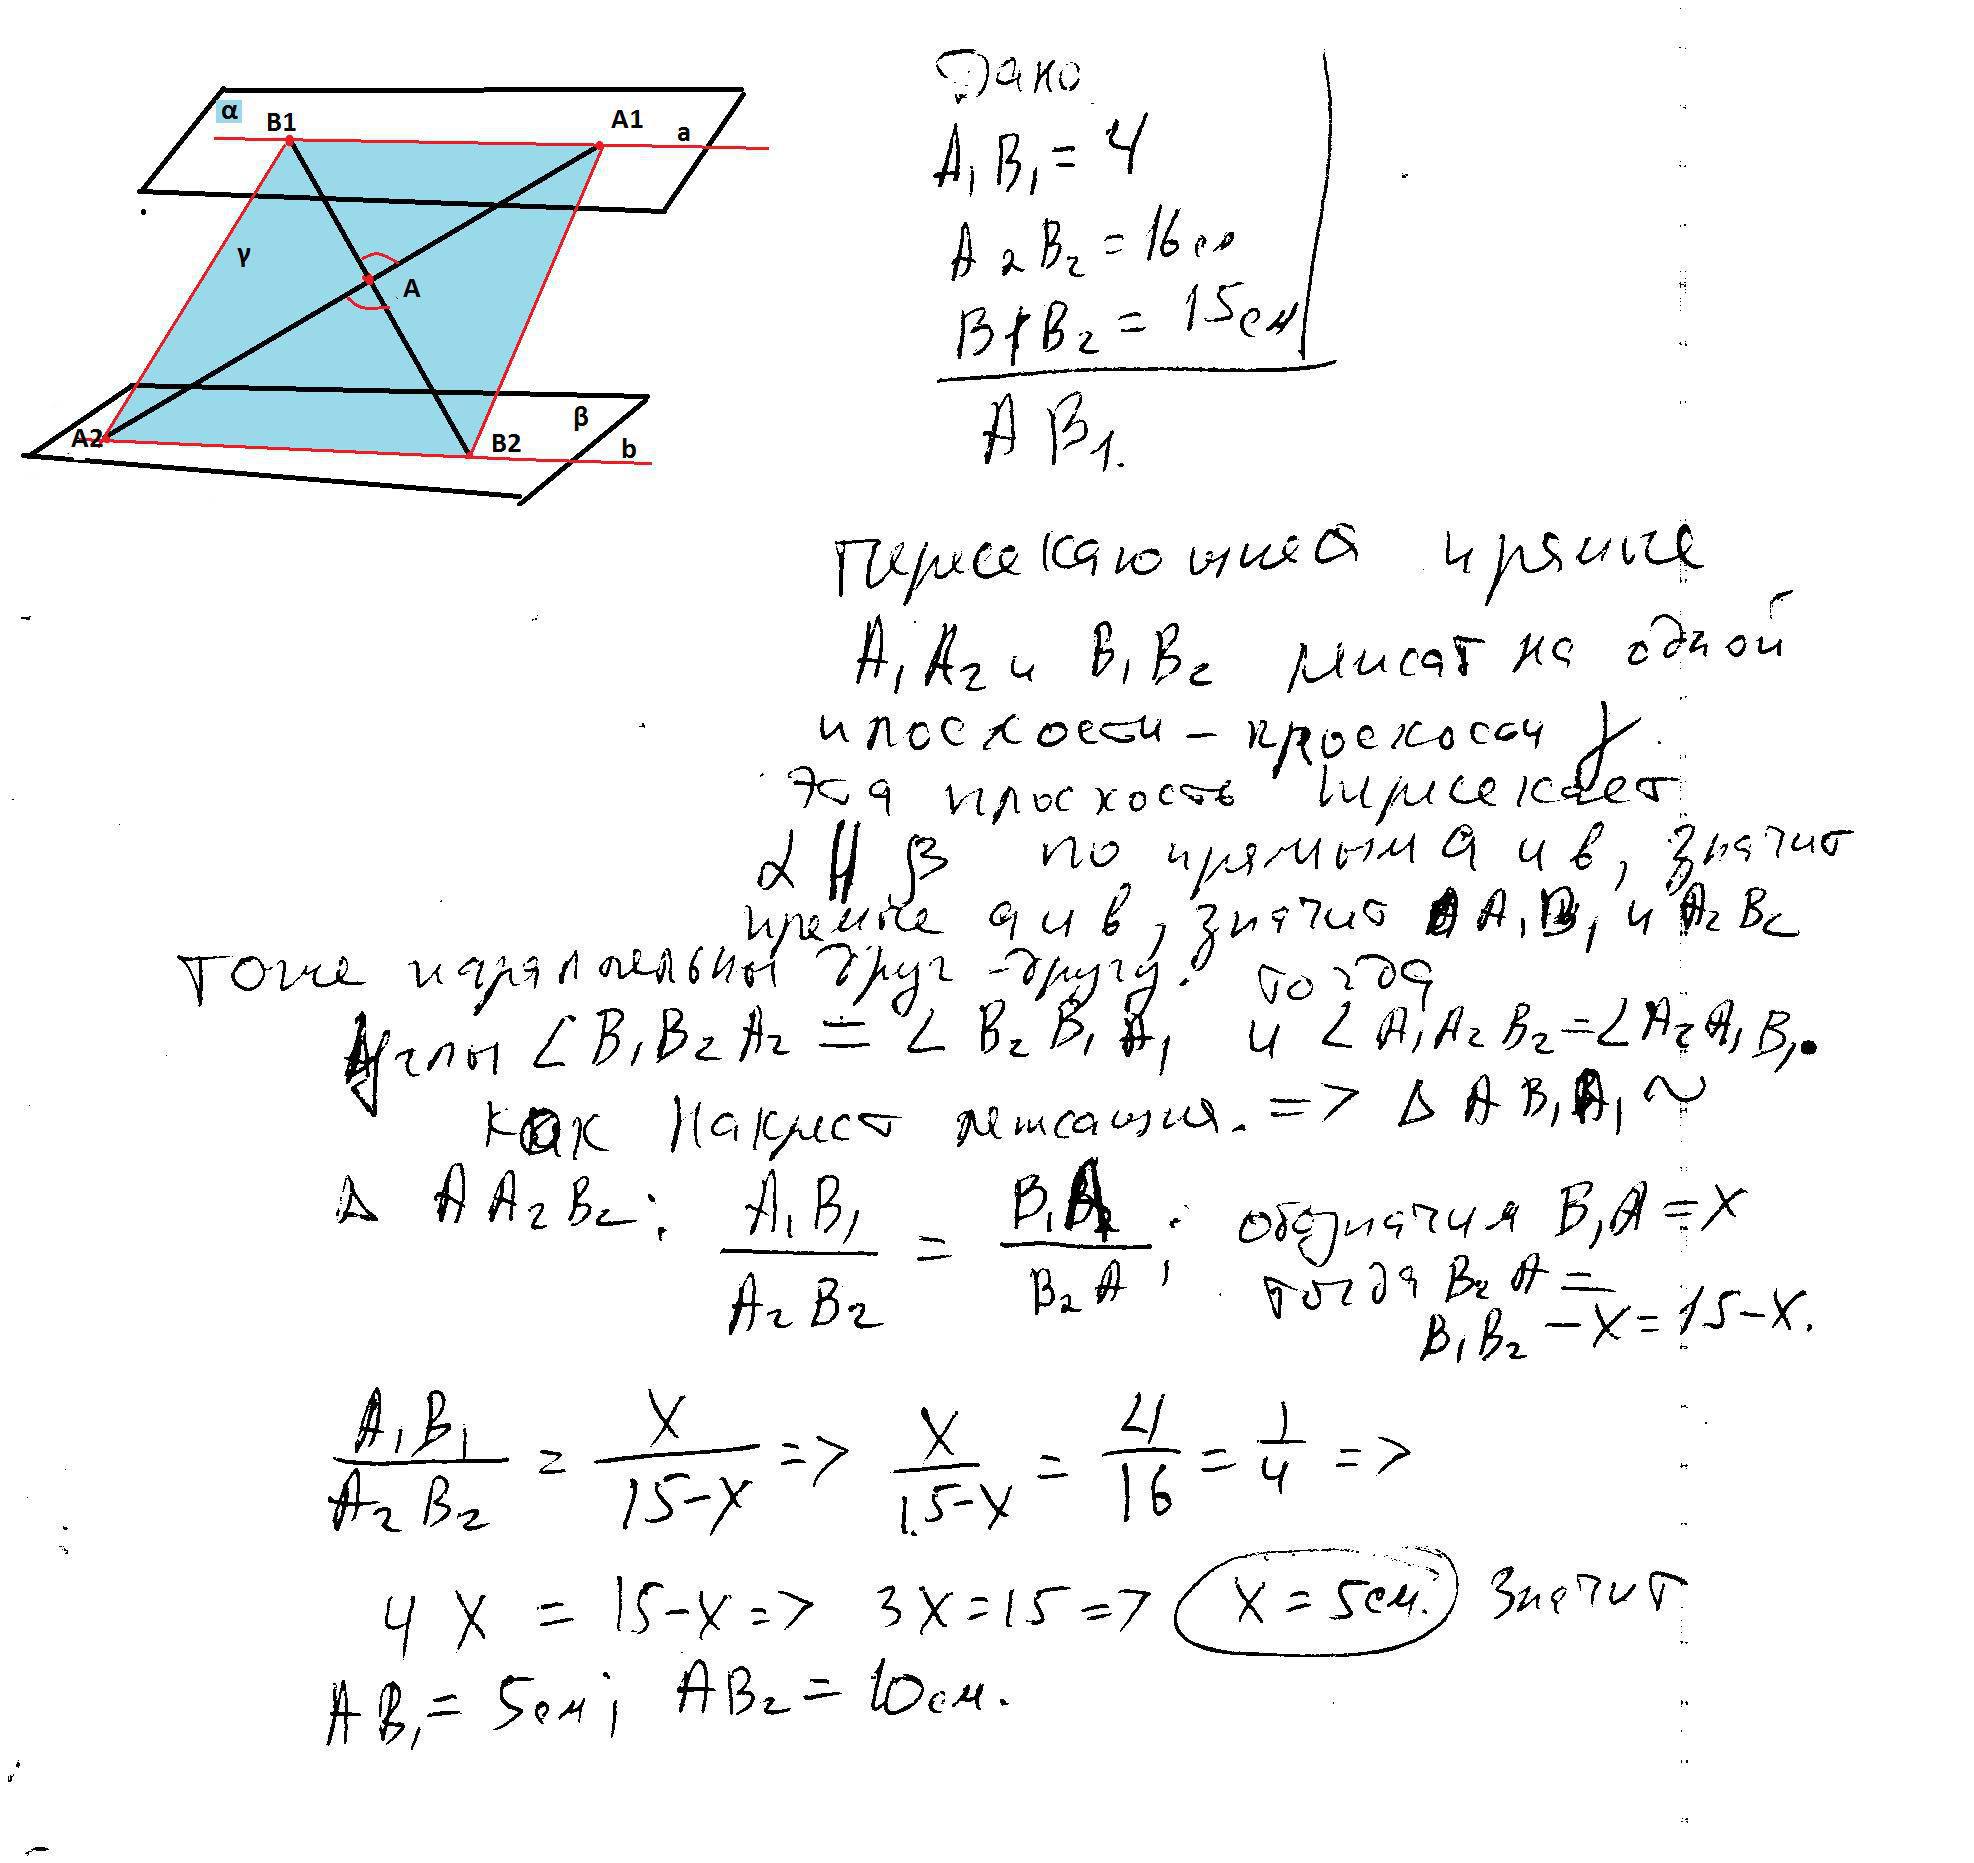 α
B1
A1
a
γ
A
A2
B2
β
b
Дано
A₁B₁ = 4
A₂B₂ = 16см
B1B₂ = 15см
AB₁.
Пересекающиеся прямые
A₁A₂ и B₁B₂ лежат на одной
плоскости – плоскости γ.
Эта плоскость пересекает
α || β по прямым a и в, значит
прямые a и в, значит A₁B₁ и A₂B₂
тоже параллельны друг-другу. тогда
Углы ∠B₁B₂A₂ = ∠B₂B₁A₁ и ∠A₁A₂B₂ = ∠A₂A₁B₁.
как Накрест лежащия. => Δ AB₁A₁ ~
Δ AA₂B₂: A₁B₁/A₂B₂ = B₁A/B₂A; обозначим B₁A = X
тогда B₂A =
B₁B₂ – X = 15–X.
A₁B₁/A₂B₂ = X/15–X => X/15–X = 4/16 = 1/4 =>
4X = 15–X => 3X = 15 => X = 5см. Значит
AB₁ = 5см; AB₂ = 10см.